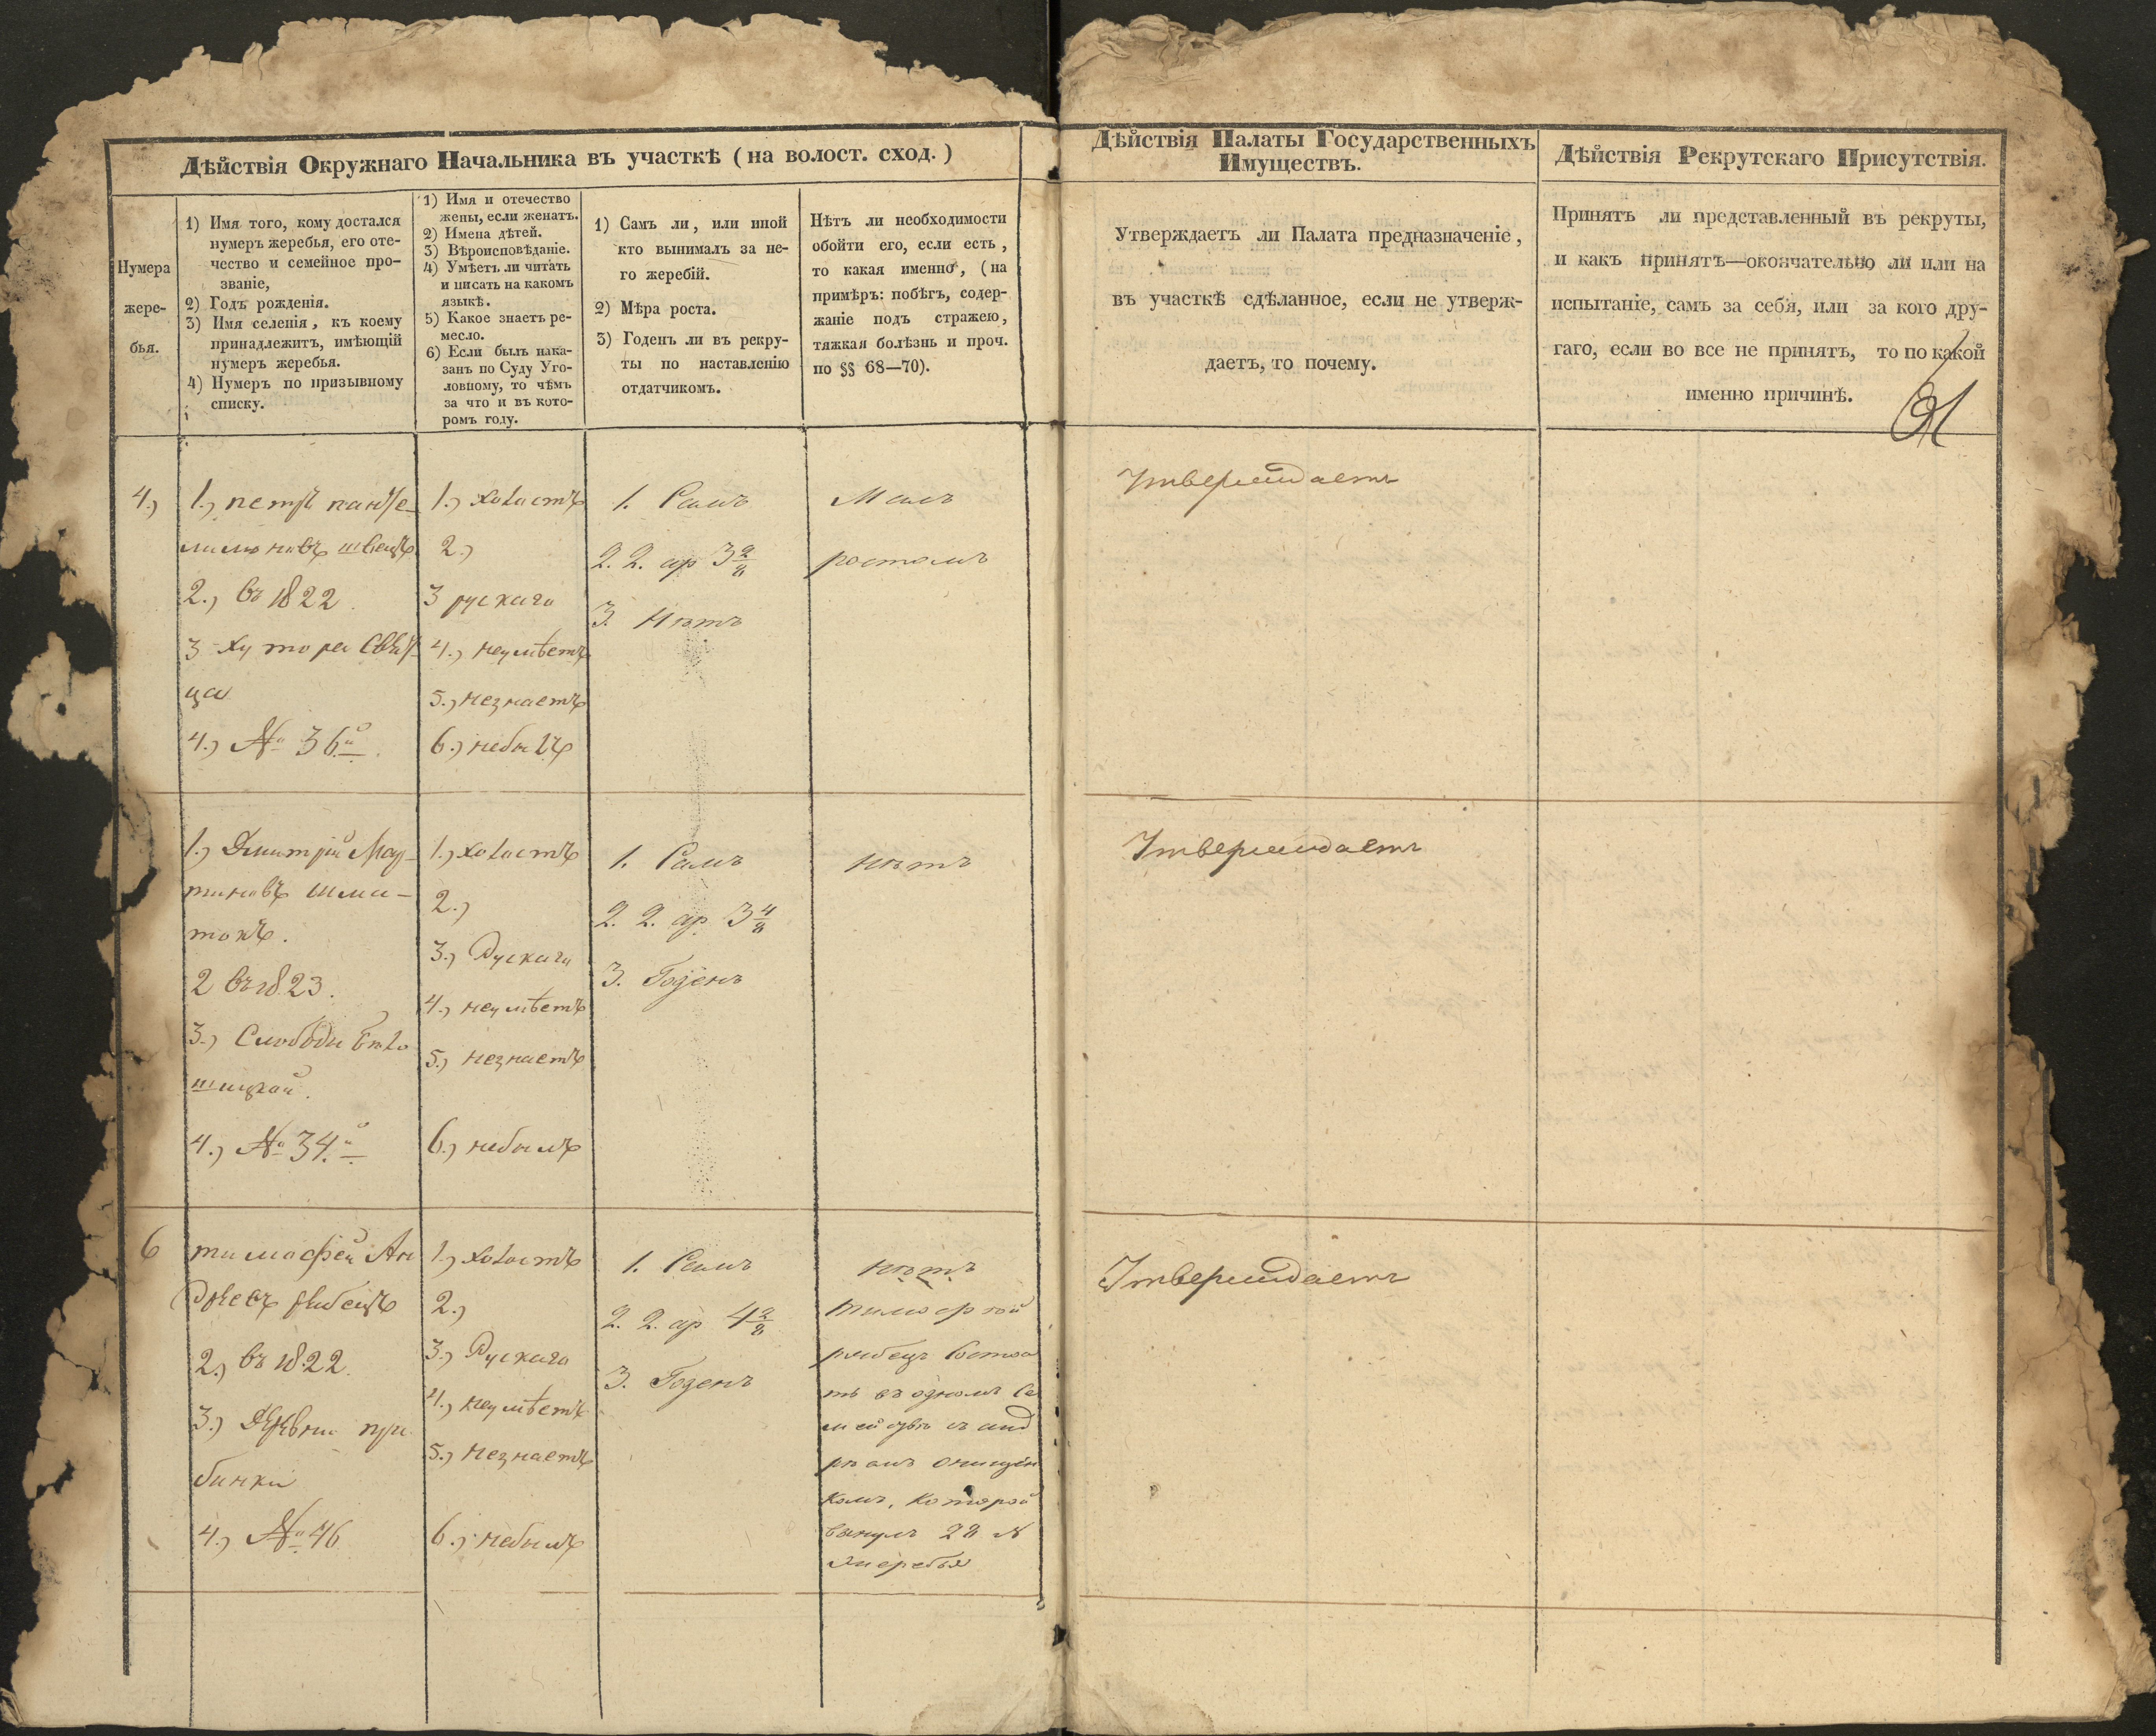 Дѣйствія Окружнаго Начальника въ участкѣ (на волост. сход.)
Нумера
жере-
бья.
1) Имя того, кому достался
нумеръ жеребья, его оте-
чество и семейное про-
званіе,
2) Годъ рожденія.
3) Имя селенія, къ коему
принадлежитъ, имѣющій
нумеръ жеребья.
4) Нумеръ по призывному
списку.
1) Имя и отечество
жены, если женатъ.
2) Имена дѣтей.
3) Вѣроисповѣданіе.
4) Умѣетъ ли читать
и писать на какомъ
языкѣ.
5) Какое знаетъ ре-
месло.
6) Если былъ нака-
занъ по Суду Уго-
ловному, то чѣмъ
за что и въ кото-
ромъ году.
1) Самъ ли, или иной
кто вынималъ за не-
го жеребій.
2) Мѣра роста.
3) Годенъ ли въ рекру-
ты по наставленію
отдатчикомъ.
Нѣтъ ли необходимости
обойти его, если есть,
то какая именно, (на
примѣръ: побѣгъ, содер-
жаніе подъ стражею,
тяжкая болѣзнь и проч.
по §§ 68—70).
4.)
1.) петръ панте-
лимоновъ швецъ
2.) въ 1822.
3 хутора Свѣ
ца
4.) № 36й.
1.) холостъ
2.)
3 рускаго
4.) неумѣетъ
5.) незнаетъ
6.) небылъ
1. Самъ
2. 2. ар 3 2/8
3. Нѣтъ
Малъ
ростомъ
1.) Дмитрій Мар-
тиновъ шма-
токъ.
2 въ 1823.
3.) Слободы Бѣло
шицкой.
4.) № 34.й
1.) холостъ
2.)
3.) Рускаго
4.) неумѣетъ
5.) незнаетъ
6.) небылъ
1. Самъ
2. 2. ар. 3 4/8
3. Годенъ
нѣтъ
6
тимофей Ан
дреевъ рибецъ
2.) въ 1822.
3.) Деревни гри
бинки
4.) № 46
1.) холостъ
2.)
3.) Рускаго
4.) неумѣетъ
5.) незнаетъ
6.) небылъ
1. Самъ
2. 2. ар 4 2/8
3. Годенъ
нѣтъ
тимофѣй
рибецъ состои
тъ въ одномъ се
мействѣ съ анд
рѣемъ онищен
комъ, которой
вынулъ 28 №
жеребья
Дѣйствія Палаты Государственныхъ
Имуществъ.
Утверждаетъ ли Палата предназначеніе,
въ участкѣ сдѣланное, если не утверж-
даетъ, то почему.
Утверждаетъ
Утверждаетъ
Утверждаетъ
Дѣйствія Рекрутскаго Присутствія.
Принятъ ли представленный въ рекруты,
и какъ принятъ—окончательно ли или на
испытаніе, самъ за себя, или за кого дру-
гаго, если во все не принятъ, то по какой
именно причинѣ.